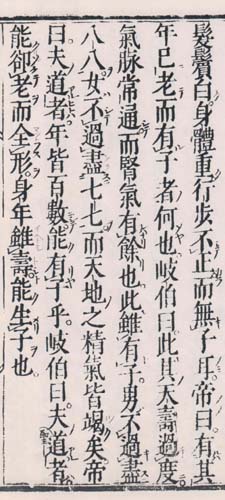 髮鬢白身體重行步不正而無子耳帝曰有其
年已老而有子者何也岐伯曰此其天壽過度
氣脉常通而腎氣有餘也此雖有子男不過盡
八八女不過盡七七而天地之精氣皆竭矣帝
曰夫道者年皆百數能有子乎岐伯曰夫道者
能卻老而全形身年雖壽能生子也